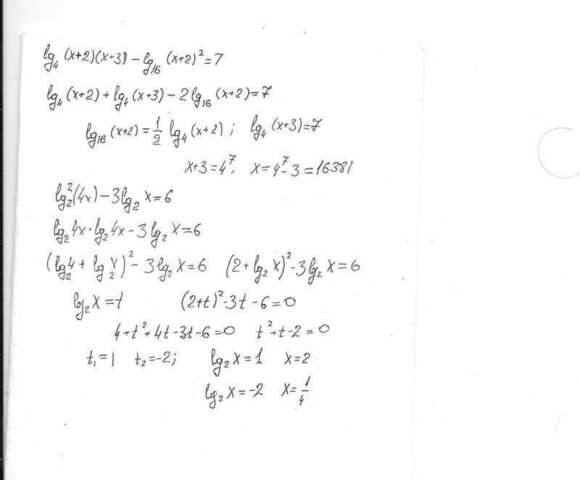 lg₄(x+2)(x+3)-lg₁₆(x+2)²=7
lg₄(x+2)+lg₄(x+3)-2lg₁₆(x+2)=7
lg₁₆(x+2)=1/2 lg₄(x+2); lg₄(x+3)=7
x+3=4⁷; x=4⁷-3=16381
lg₂²(4x)-3lg₂x=6
lg₂4x·lg₂4x-3lg₂x=6
(lg₂4+lg₂x)²-3lg₂x=6 (2+lg₂x)²-3lg₂x=6
lg₂x=t (2+t)²-3t-6=0
4+t²+4t-3t-6=0 t²+t-2=0
t₁=1 t₂=-2; lg₂x=1 x=2
lg₂x=-2 x=1/4